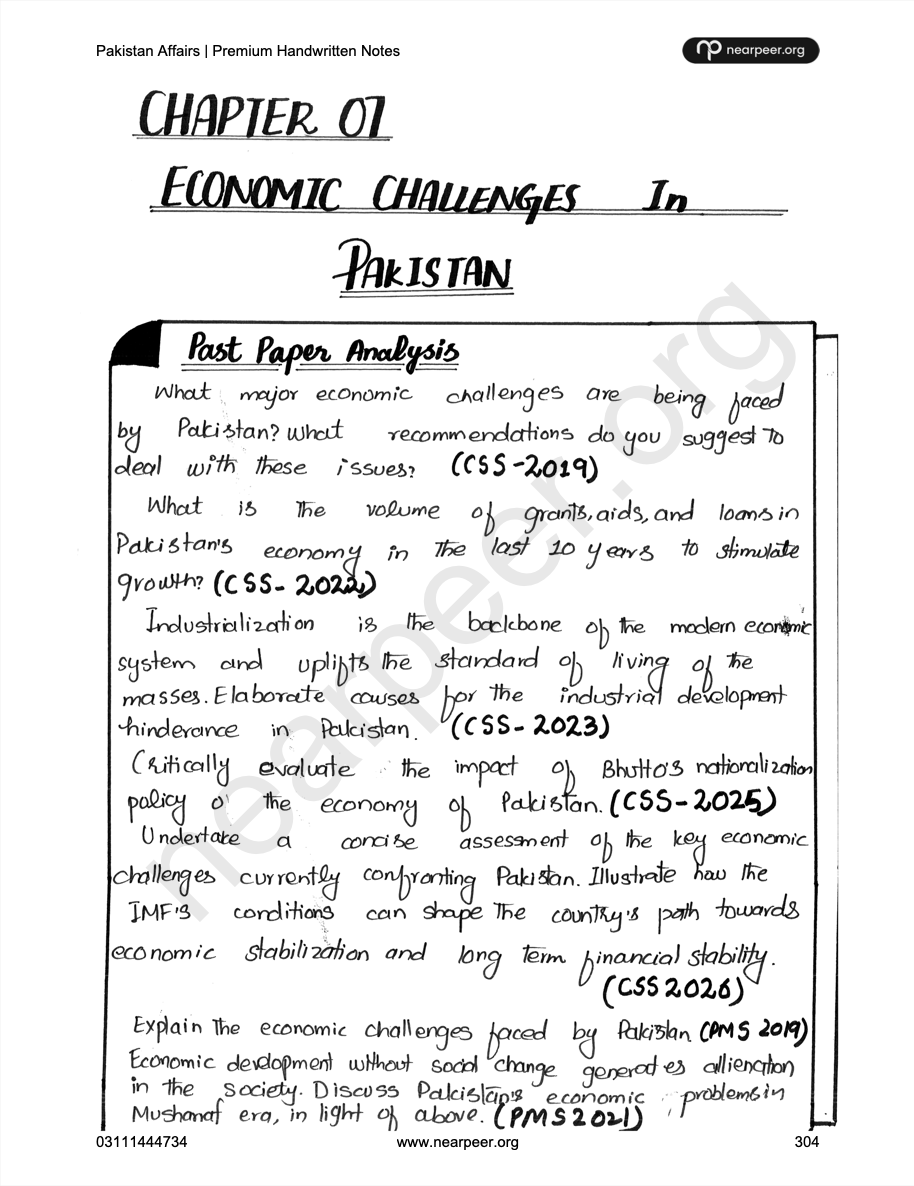 Pakistan Affairs | Premium Handwritten Notes
nearpeer.org
CHAPTER 07
ECONOMIC CHALLENGES In
PAKISTAN
Past Paper Analysis
What major economic challenges are being faced
by Pakistan? What recommendations do you suggest to
deal with these issues? (CSS-2019)
What is the volume of grants, aids, and loans in
Pakistan's economy in the last 10 years to stimulate
growth? (CSS-2022)
Industrialization is the backbone of the modern economic
system and uplifts the standard of living of the
masses. Elaborate causes for the industrial development
hinderance in Pakistan. (CSS-2023)
Critically evaluate the impact of Bhutto's nationalization
policy o the economy of Pakistan. (CSS-2025)
Undertake a concise assessment of the key economic
challenges currently confronting Pakistan. Illustrate how the
IMF's conditions can shape the country's path towards
economic stabilization and long term financial stability.
(CSS 2026)
Explain the economic challenges faced by Pakistan (PMS 2019)
Economic development without social change generates allienation
in the society. Discuss Pakistan's economic problems in
Musharraf era, in light of above. (PMS 2021)
nearpeer.org
03111444734
www.nearpeer.org
304